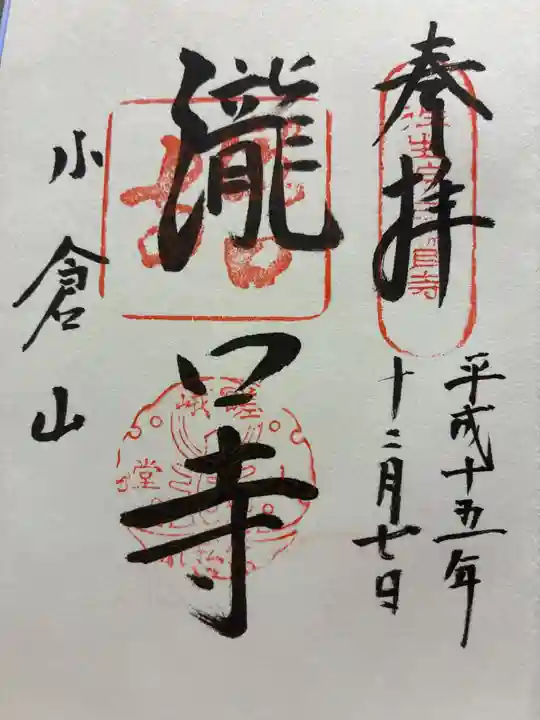 奉拝
平成十五年
十二月七日
瀧口寺
小倉山
嵯峨
堂